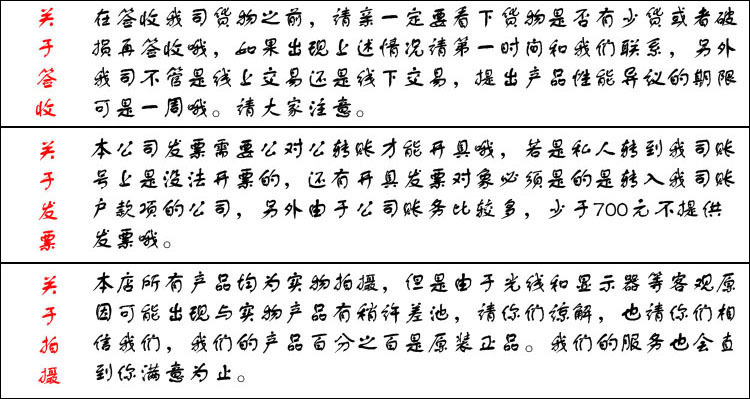 关于签收
在签收我司货物之前，请亲一定要看下货物是否有少货或者破
损再签收哦，如果出现上述情况请第一时间和我们联系，另外
我司不管是线上交易还是线下交易，提出产品性能异议的期限
可是一周哦。请大家注意。
关于发票
本公司发票需要公对公转账才能开具哦，若是私人转到我司账
号上是没法开票的，还有开具发票对象必须是的是转入我司账
户款项的公司，另外由于公司账务比较多，少于700元不提供
发票哦。
关于拍摄
本店所有产品均为实物拍摄，但是由于光线和显示器等客观原
因可能出现与实物产品有稍许差池，请你们谅解，也请你们相
信我们，我们的产品百分之百是原装正品。我们的服务也会直
到你满意为止。